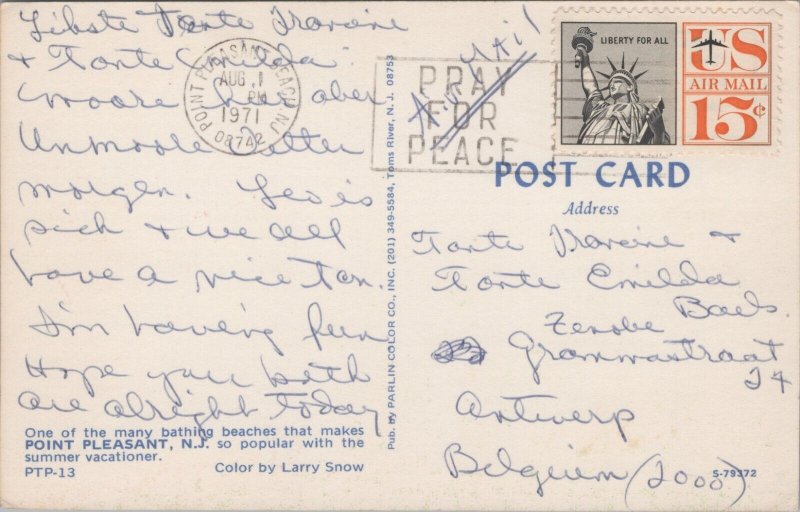 Libste Tante Irarine
+ Tante Emilda
moore over ober
Unmoore Potter
morgen. Leo is
sick + we all
have a nice Tan.
I'm having fun
Hope you both
are alright today
One of the many bathing beaches that makes
POINT PLEASANT, N.J. so popular with the
summer vacationer.
PTP-13 Color by Larry Snow
Pub. by PARLIN COLOR CO., INC. (201) 349-5584, Toms River, N. J. 08753
POINT PLEASANT BEACH NJ
AUG 1
PM
1971
08742
PRAY
FOR
PEACE
Air Mail
LIBERTY FOR ALL
US
AIR MAIL
15¢
POST CARD
Address
Tante Irarine +
Tante Emilda
Baels
Zenobe
Grammastraat
24
Antwerp
Belgium (2000)
S-79372